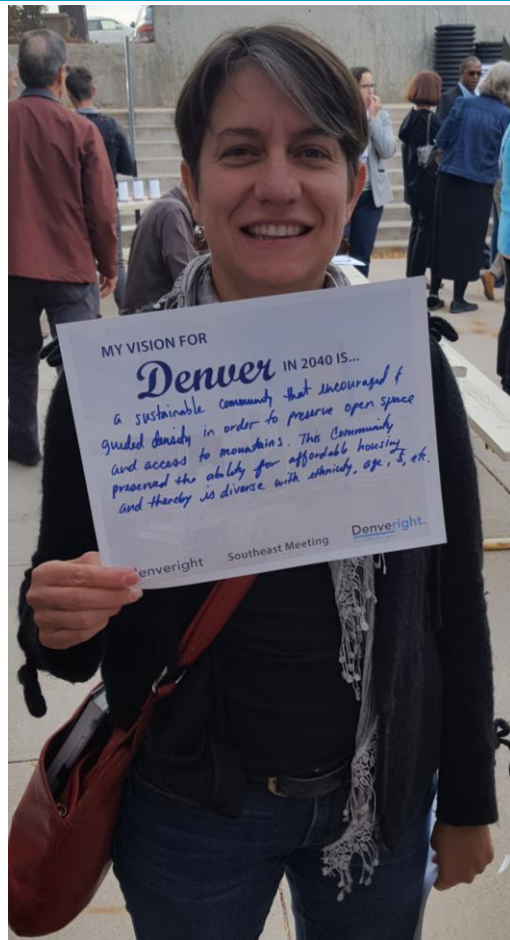 MY VISION FOR
Denver IN 2040 IS...
a sustainable community that encouraged &
guided density in order to preserve open space
and access to mountains. This Community
preserved the ability for affordable housing
and thereby is diverse with ethnicity, age, $, etc.
enveright Southeast Meeting Denveright.